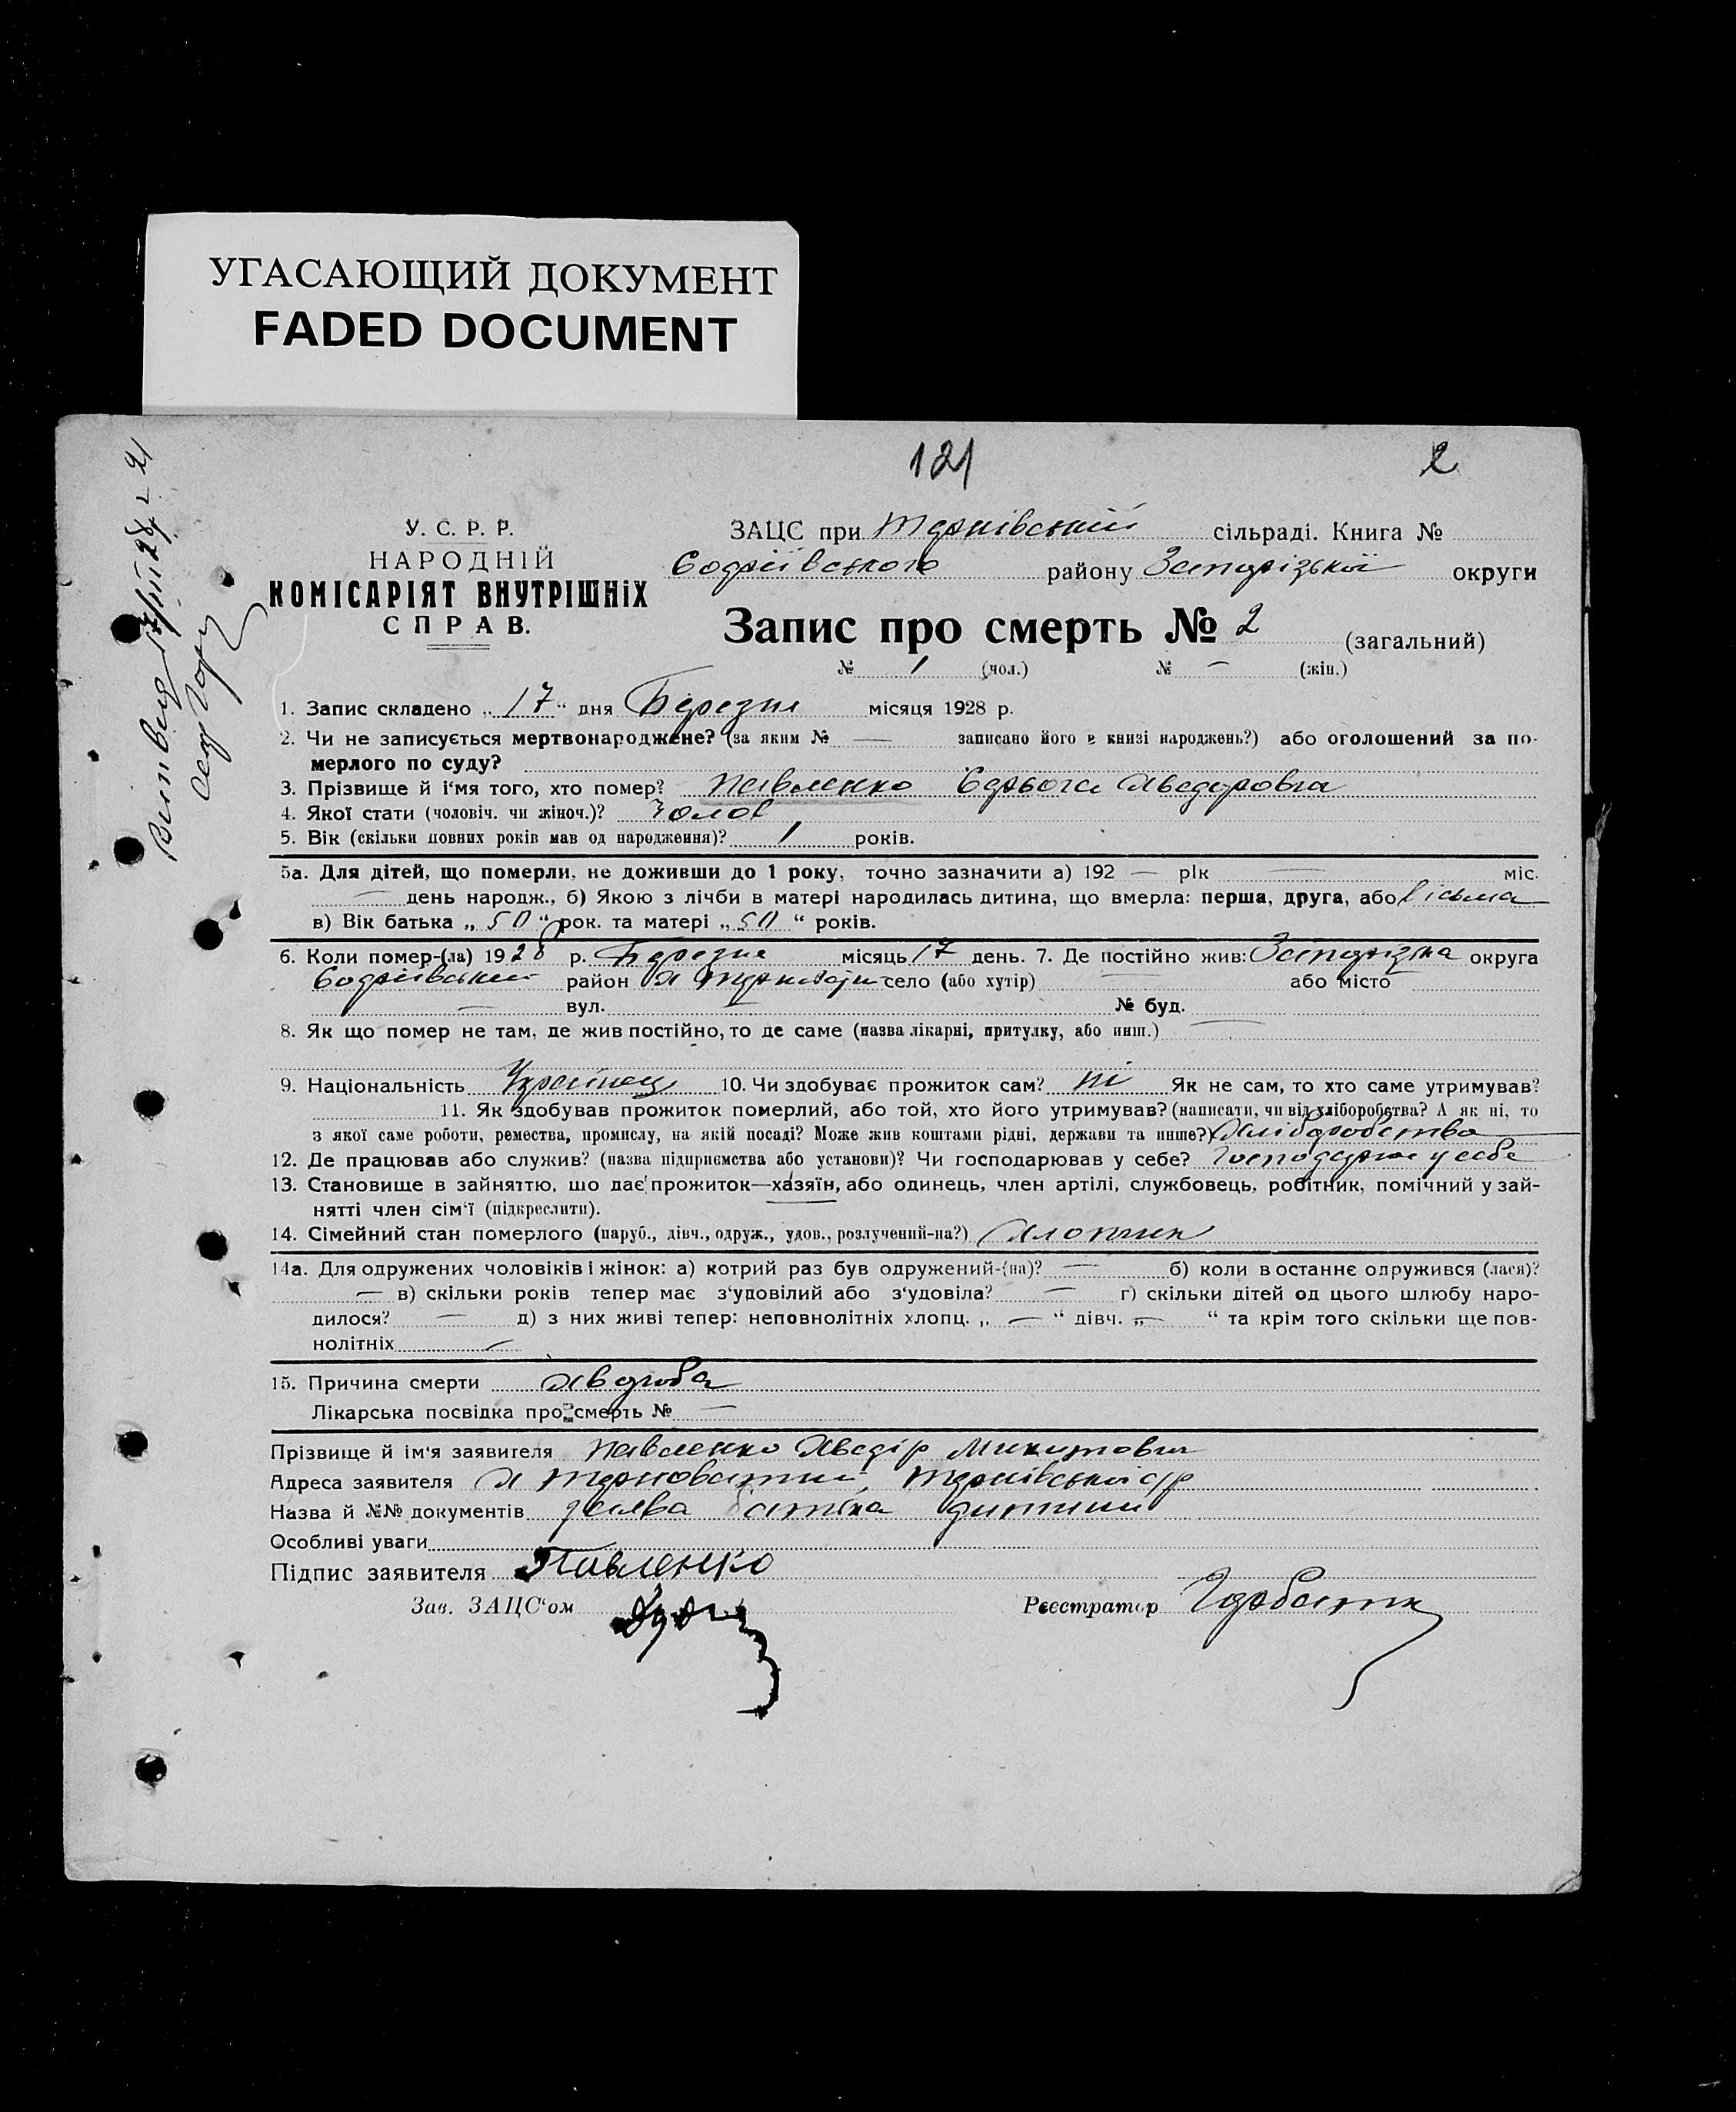 УГАСАЮЩИЙ ДОКУМЕНТ
FADED DOCUMENT
121
2
У. С. Р. Р.
НАРОДНІЙ
КОМІСАРІЯТ ВНУТРІШНІХ
СПРАВ.
ЗАЦС при Тернівській сільраді. Книга №
Софіївського району Запорізької округи
Запис про смерть № 2 (загальний)
№ 1 (чол.) № — (жін.)
1. Запис складено „17“ дня Березня місяця 1928 р.
2. Чи не записується мертвонароджене? (за яким № — записано його в книзі народжень?) або оголошений за по-
мерлого по суду?
3. Прізвище й і'мя того, хто помер? Павленко
4. Якої стати (чоловіч. чи жіноч.)? Чолов
5. Вік (скільки повних років мав од народження)? 1 років.
5а. Для дітей, що померли, не доживши до 1 року, точно зазначити а) 192 — рік — міс.
— день народж., б) Якою з лічби в матері народилась дитина, що вмерла: перша, друга, або вісьма
в) Вік батька „50“ рок. та матері „50“ років.
6. Коли помер-(ла) 1928 р. Березня місяць 17 день. 7. Де постійно жив: Запорізька округа
Софіївський район село (або хутір) — або місто —
— вул. — № буд.
8. Як що помер не там, де жив постійно, то де саме (назва лікарні, притулку, або инш.) —
9. Національність Українець 10. Чи здобуває прожиток сам? ні Як не сам, то хто саме утримував?
11. Як здобував прожиток померлий, або той, хто його утримував? (написати, чи від хліборобства? А як ні, то
з якої саме роботи, ремества, промислу, на якій посаді? Може жив коштами рідні, держави та инше?) Хліборобство
12. Де працював або служив? (назва підприємства або установи)? Чи господарював у себе? Господарює у себе
13. Становище в зайняттю, що дає прожиток—хазяїн, або одинець, член артілі, службовець, робітник, помічний у зай-
нятті член сім'ї (підкреслити).
14. Сімейний стан померлого (паруб., дівч., одруж., удов., розлучений-на?) Хлопчик
14а. Для одружених чоловіків і жінок: а) котрий раз був одружений-(на)? — б) коли в останнє одружився (лася)?
— в) скільки років тепер має з'удовілий або з'удовіла? — г) скільки дітей од цього шлюбу наро-
дилося? — д) з них живі тепер: неповнолітніх хлопц. „ — “ дівч. „ — “ та крім того скільки ще пов-
нолітніх —
15. Причина смерти хвороба
Лікарська посвідка про смерть № —
Прізвище й ім'я заявителя Павленко Хведір Микитович
Адреса заявителя х Терноватий, Тернівської с/р
Назва й №№ документів заява батька дитини
Особливі уваги
Підпис заявителя Павленко
Зав. ЗАЦС'ом
Реєстратор